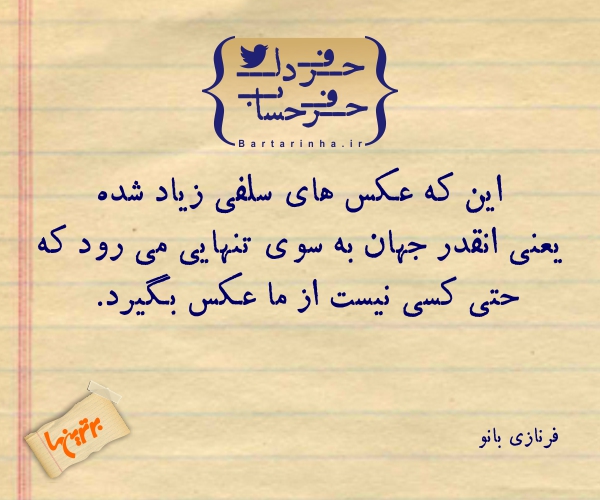 حرف دل
حرف حساب
Bartarinha.ir
این که عکس های سلفی زیاد شده
یعنی انقدر جهان به سوی تنهایی می رود که
حتی کسی نیست از ما عکس بگیرد.
فرنازی بانو
برترین‌ها